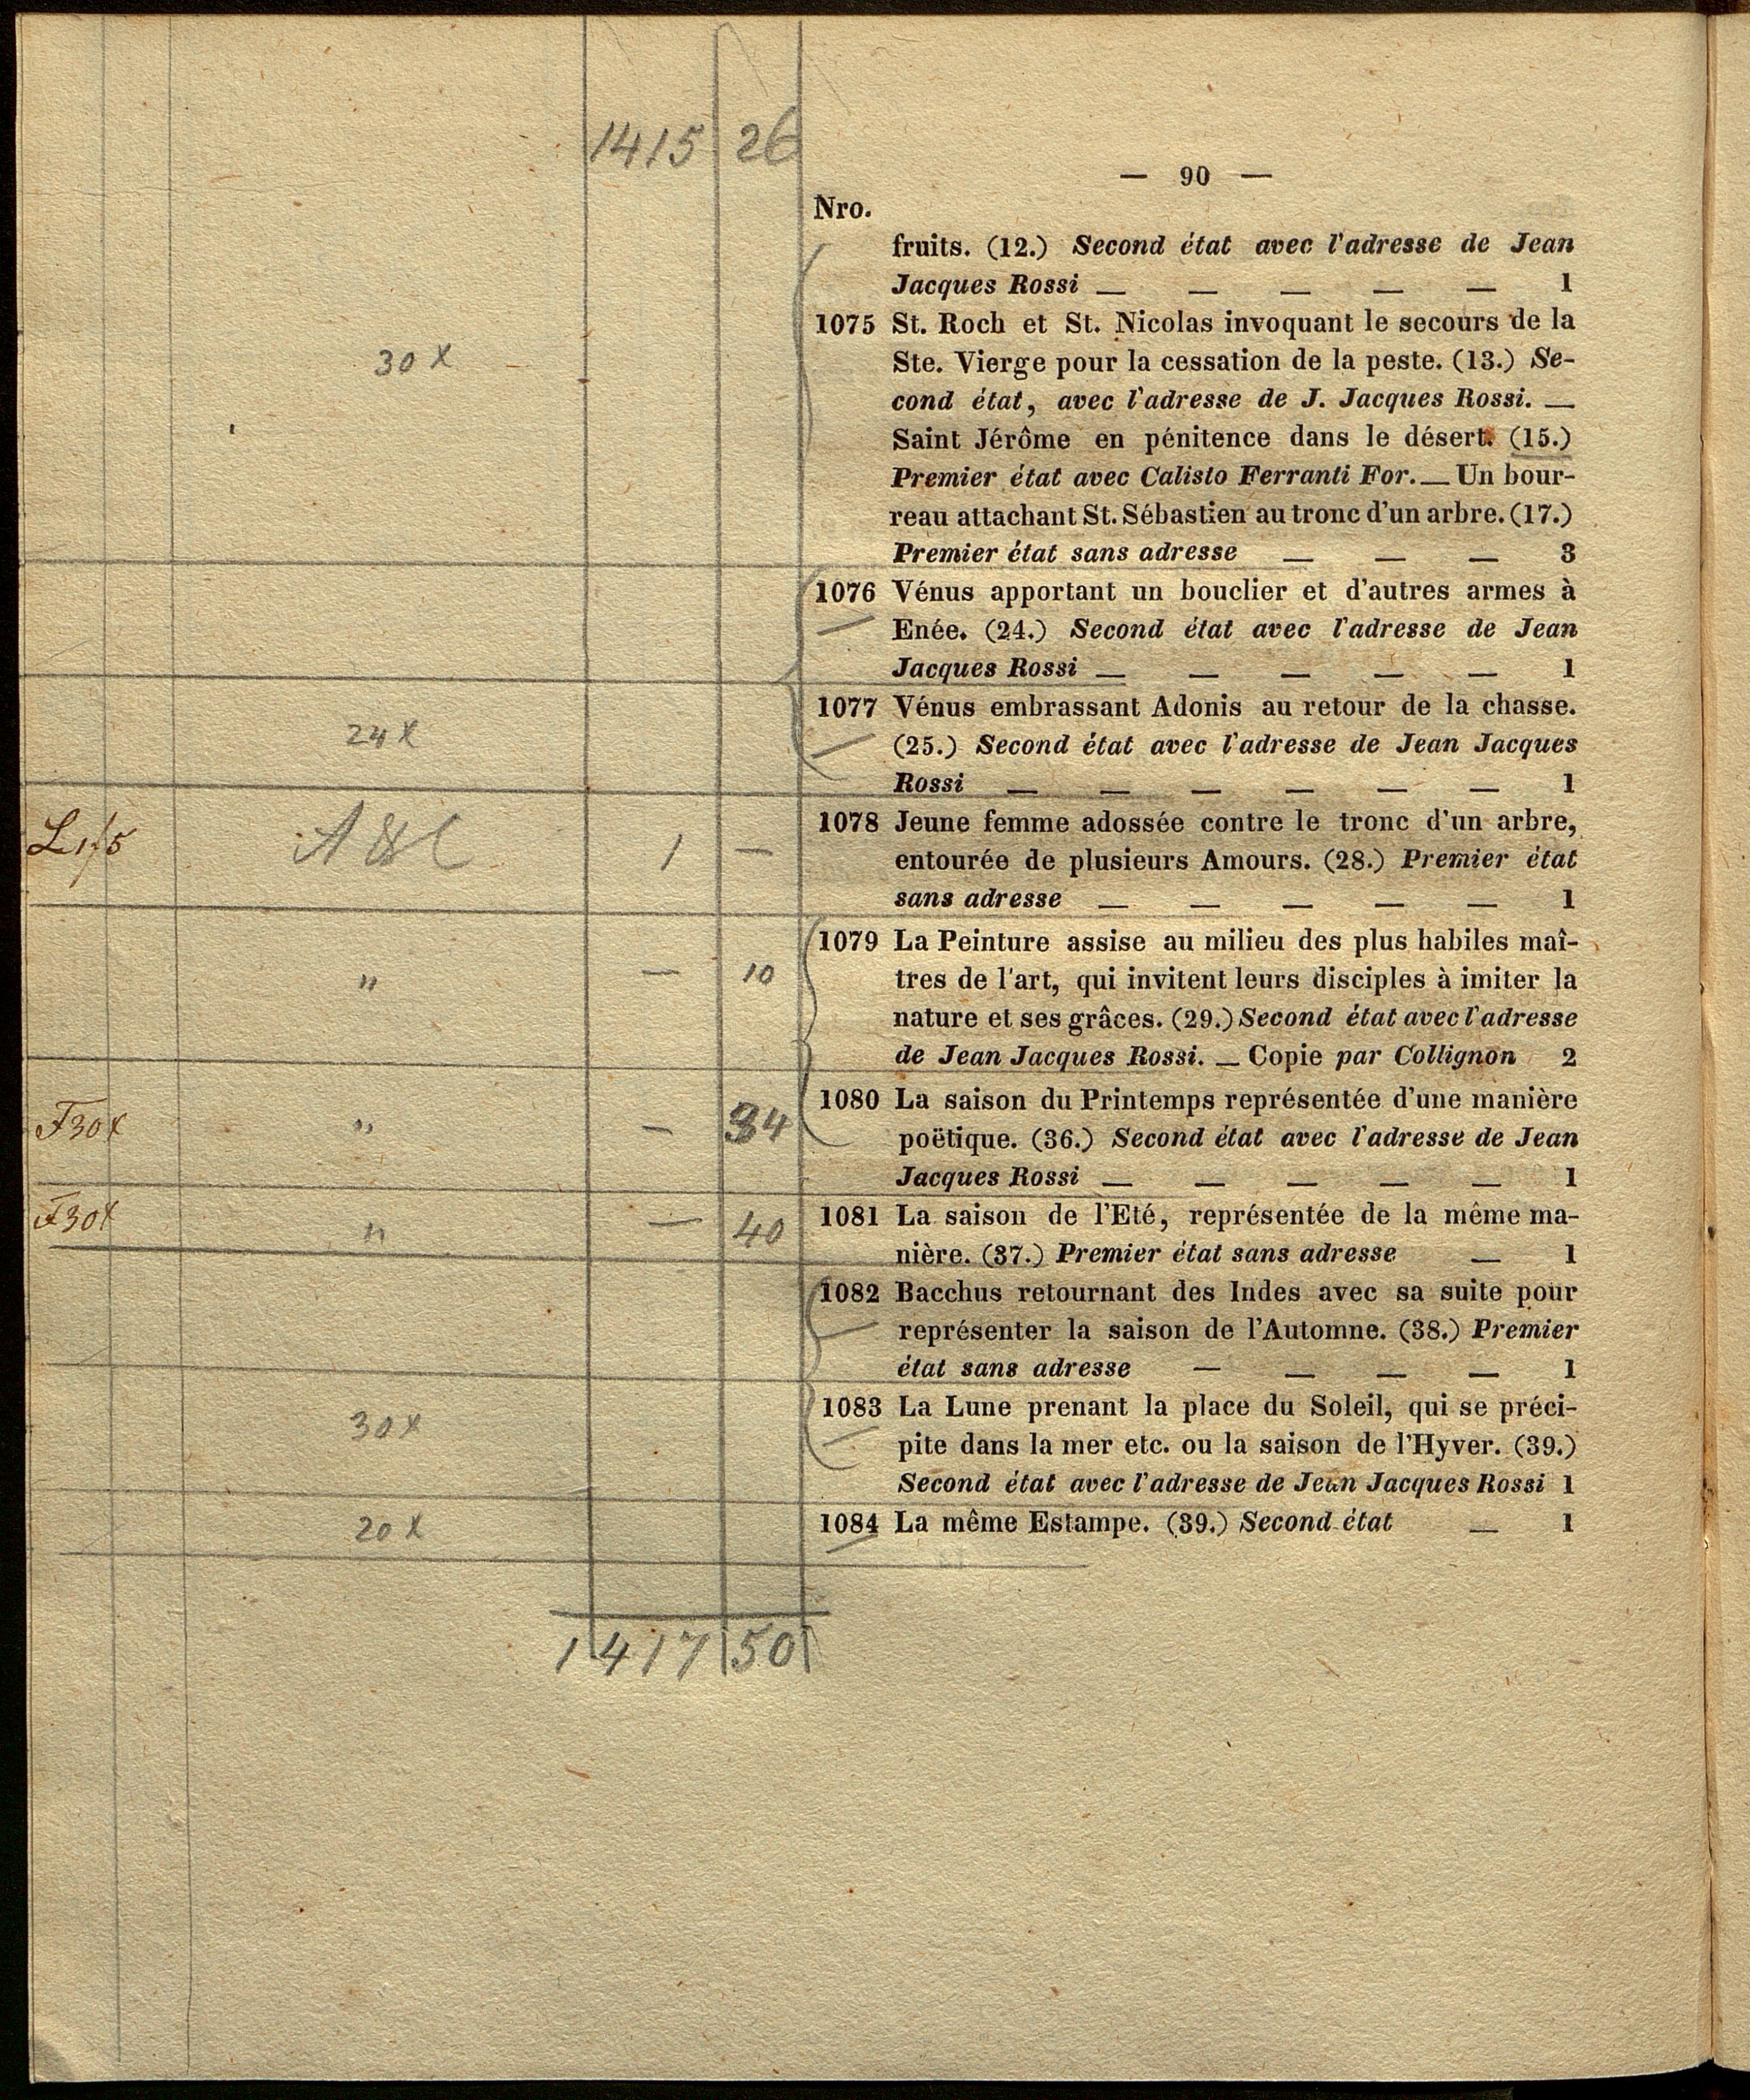 1415 26
— 90 —
Nro.
fruits. (12.) Second état avec l'adresse de Jean
Jacques Rossi — — — — — 1
1075 St. Roch et St. Nicolas invoquant le secours de la
30 x Ste. Vierge pour la cessation de la peste. (13.) Se-
cond état, avec l'adresse de J. Jacques Rossi. —
Saint Jérôme en pénitence dans le désert. (15.)
Premier état avec Calisto Ferranti For. — Un bour-
reau attachant St. Sébastien au tronc d'un arbre. (17.)
Premier état sans adresse — — — 3
1076 Vénus apportant un bouclier et d'autres armes à
Enée. (24.) Second état avec l'adresse de Jean
Jacques Rossi — — — — — 1
1077 Vénus embrassant Adonis au retour de la chasse.
24 x (25.) Second état avec l'adresse de Jean Jacques
Rossi — — — — — — 1
1078 Jeune femme adossée contre le tronc d'un arbre,
1 — entourée de plusieurs Amours. (28.) Premier état
sans adresse — — — — — 1
1079 La Peinture assise au milieu des plus habiles maî-
" — 10 tres de l'art, qui invitent leurs disciples à imiter la
nature et ses grâces. (29.) Second état avec l'adresse
de Jean Jacques Rossi. — Copie par Collignon 2
1080 La saison du Printemps représentée d'une manière
F30x " — 34 poëtique. (36.) Second état avec l'adresse de Jean
Jacques Rossi — — — — — 1
F30x " — 40 1081 La saison de l'Eté, représentée de la même ma-
nière. (37.) Premier état sans adresse — 1
1082 Bacchus retournant des Indes avec sa suite pour
représenter la saison de l'Automne. (38.) Premier
état sans adresse — — — — 1
30 x 1083 La Lune prenant la place du Soleil, qui se préci-
pite dans la mer etc. ou la saison de l'Hyver. (39.)
Second état avec l'adresse de Jean Jacques Rossi 1
20 x 1084 La même Estampe. (39.) Second état — 1
1417 50